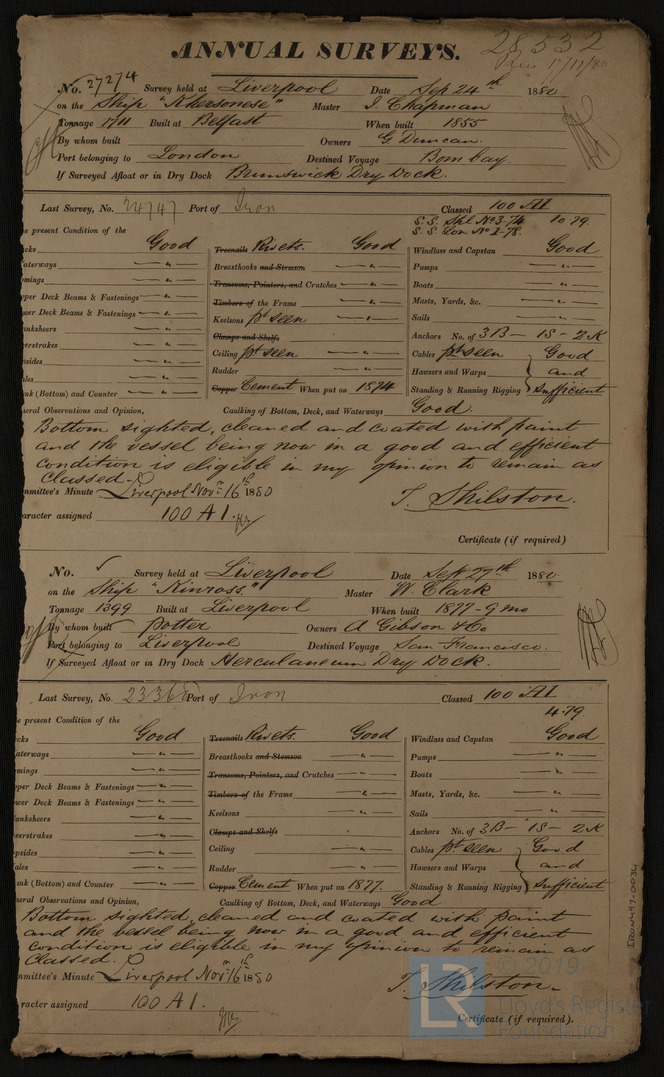 28532
ANNUAL SURVEYS.
No. 27274 Survey held at Liverpool Date Sep 24th 1880
on the Ship "Khersonese" Master I. Chapman
Tonnage 1711 Built at Belfast When built 1855
By whom built Owners G. Duncan.
Port belonging to London Destined Voyage Bombay.
If Surveyed Afloat or in Dry Dock Brunswick Dry Dock.
Last Survey, No. 24747 Port of Iron Classed 100 A1
S.S. Spl No 3-74 10.79
S.S. Lon. No 2-78.
e present Condition of the
cks Good Treenails Rivets. Good Windlass and Capstan Good
aterways " Breasthooks and Stemson " Pumps "
mings " Transoms, Pointers, and Crutches " Boats "
per Deck Beams & Fastenings " Timbers of the Frame " Masts, Yards, &c. "
wer Deck Beams & Fastenings " Keelsons pt seen " Sails "
anksheers " Clamps and Shelfs Anchors No. of 3B - 1S - 2K
erstrakes " Ceiling pt seen " Cables pt seen Good
psides " Rudder " Hawsers and Warps and
ales " Copper Cement When put on 1874 Standing & Running Rigging Sufficient
nk (Bottom) and Counter "
eral Observations and Opinion, Caulking of Bottom, Deck, and Waterways Good.
Bottom sighted, cleaned and coated with paint
and the vessel being now in a good and efficient
condition is eligible in my opinion to remain as
Classed.
mmittee's Minute Liverpool Novr 16th 1880
T. Shilston.
aracter assigned 100 A1.
Certificate (if required)
No. Survey held at Liverpool Date Sept 27th 1880.
on the Ship "Kinross." Master W. Clark
Tonnage 1399 Built at Liverpool When built 1877-9mo
By whom built Potter Owners A Gibson & Co
Port belonging to Liverpool Destined Voyage San Francisco.
If Surveyed Afloat or in Dry Dock Herculaneum Dry Dock.
Last Survey, No. 23368 Port of Iron Classed 100 A1
4.79
e present Condition of the
cks Good Treenails Rivets. Good Windlass and Capstan Good
aterways " Breasthooks and Stemson " Pumps "
mings " Transoms, Pointers, and Crutches " Boats "
pper Deck Beams & Fastenings " Timbers of the Frame " Masts, Yards, &c. "
wer Deck Beams & Fastenings " Keelsons " Sails "
lanksheers " Clamps and Shelfs Anchors No. of 3B - 1S - 2K
erstrakes " Ceiling " Cables pt seen Good
psides " Rudder " Hawsers and Warps and
ales " Copper Cement When put on 1877. Standing & Running Rigging Sufficient
ank (Bottom) and Counter "
eral Observations and Opinion, Caulking of Bottom, Deck, and Waterways Good
Bottom sighted, cleaned and coated with paint
and the vessel being now in a good and efficient
condition is eligible in my opinion to remain as
Classed.
mmittee's Minute Liverpool Novr 16th 1880
T. Shilston.
racter assigned 100 A1.
Certificate (if required).
IRON497-0034
LR
© 2019
Lloyd's Register
Foundation